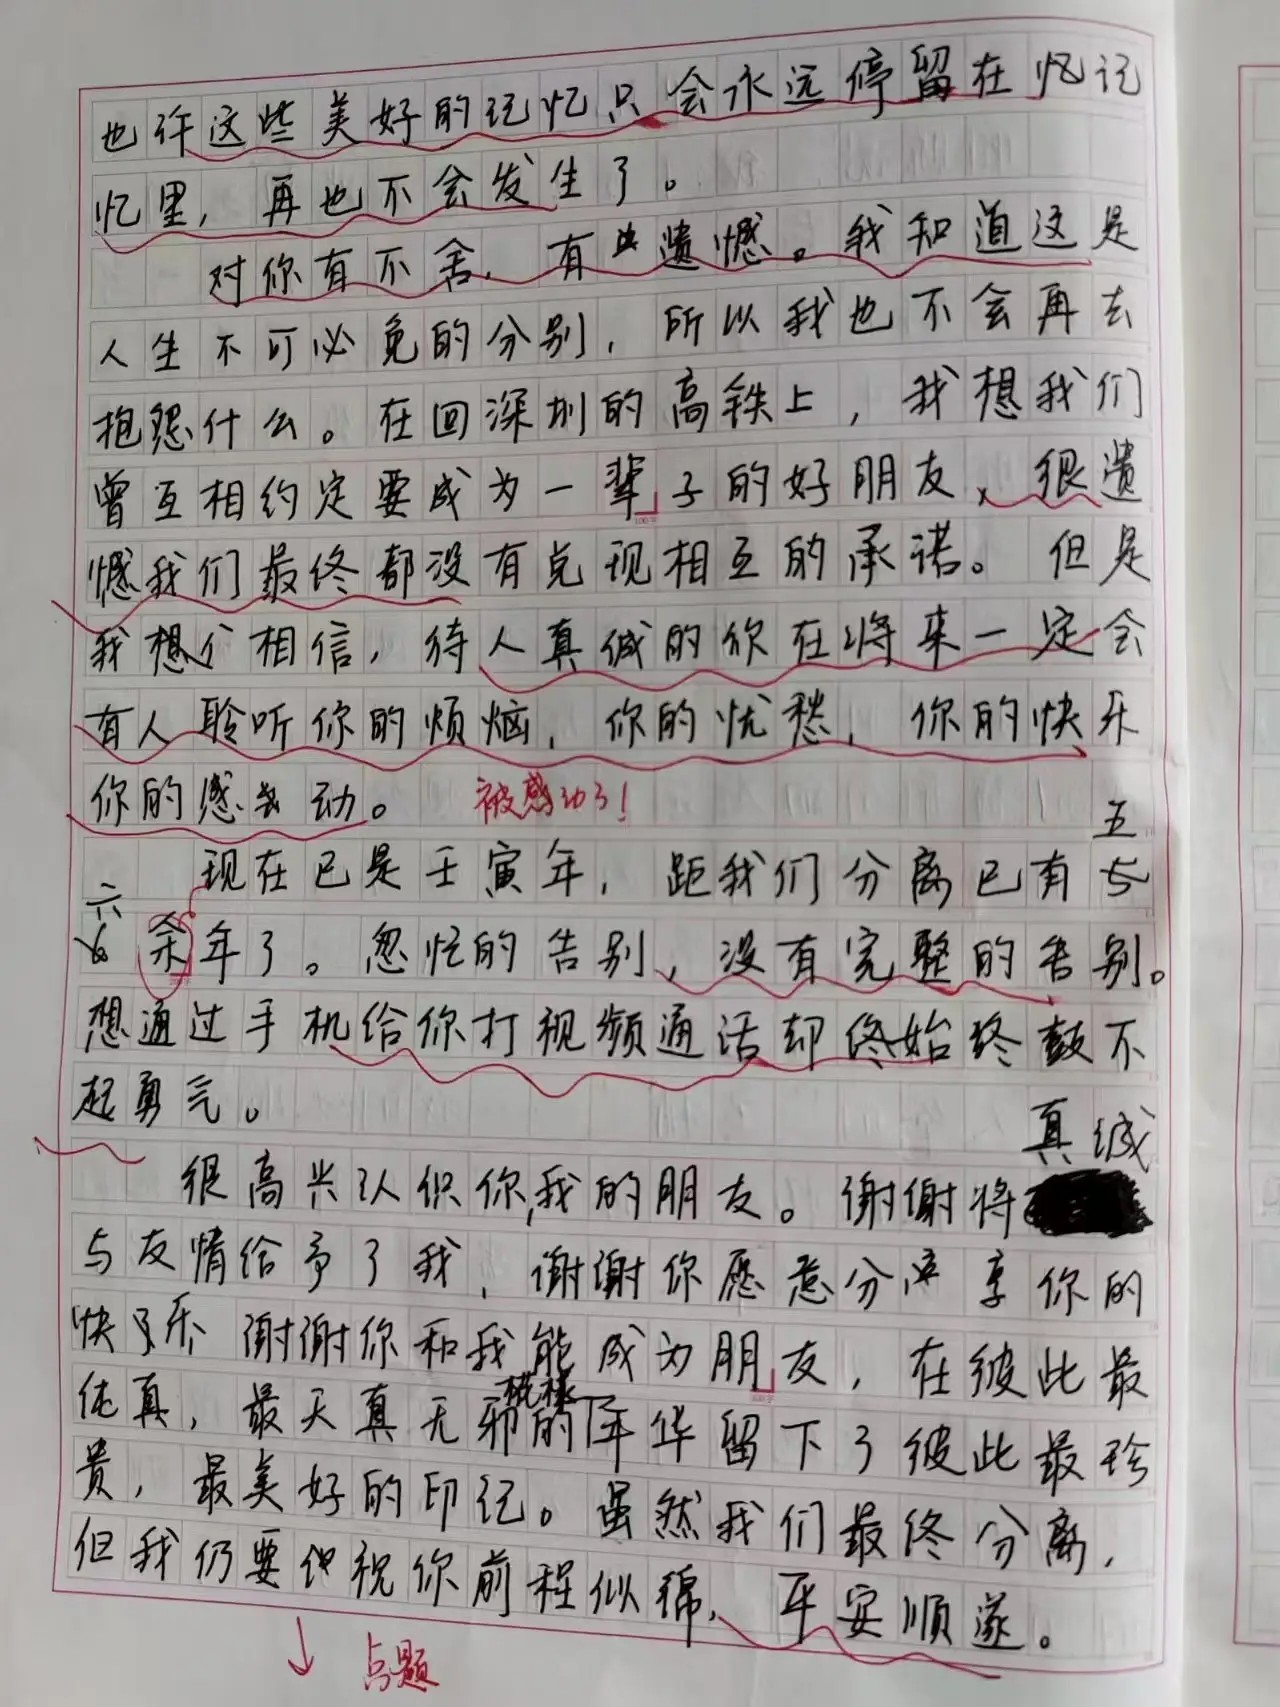 也许这些美好的记忆只会永远停留在忆记
忆里，再也不会发生了。
对你有不舍，有遗憾。我知道这是
人生不可必免的分别，所以我也不会再去
抱怨什么。在回深圳的高铁上，我想我们
曾互相约定要成为一辈子的好朋友、很遗
憾我们最终都没有兑现相互的承诺。但是
我想相信，待人真诚的你在将来一定会
有人聆听你的烦恼，你的忧愁，你的快乐
你的感动。
被感动了！
五
现在已是壬寅年，距我们分离已有
六
余年了。忽忙的告别、没有完整的告别。
想通过手机给你打视频通话却终始终鼓不
起勇气。
真诚
很高兴认识你，我的朋友。谢谢将
与友情给予了我，谢谢你愿意分享你的
快乐 谢谢你和我能成为朋友，在彼此最
纯真，最天真无邪的年华留下了彼此最珍
贵，最美好的印记。虽然我们最终分离，
但我仍要祝你前程似锦、平安顺遂。
点题